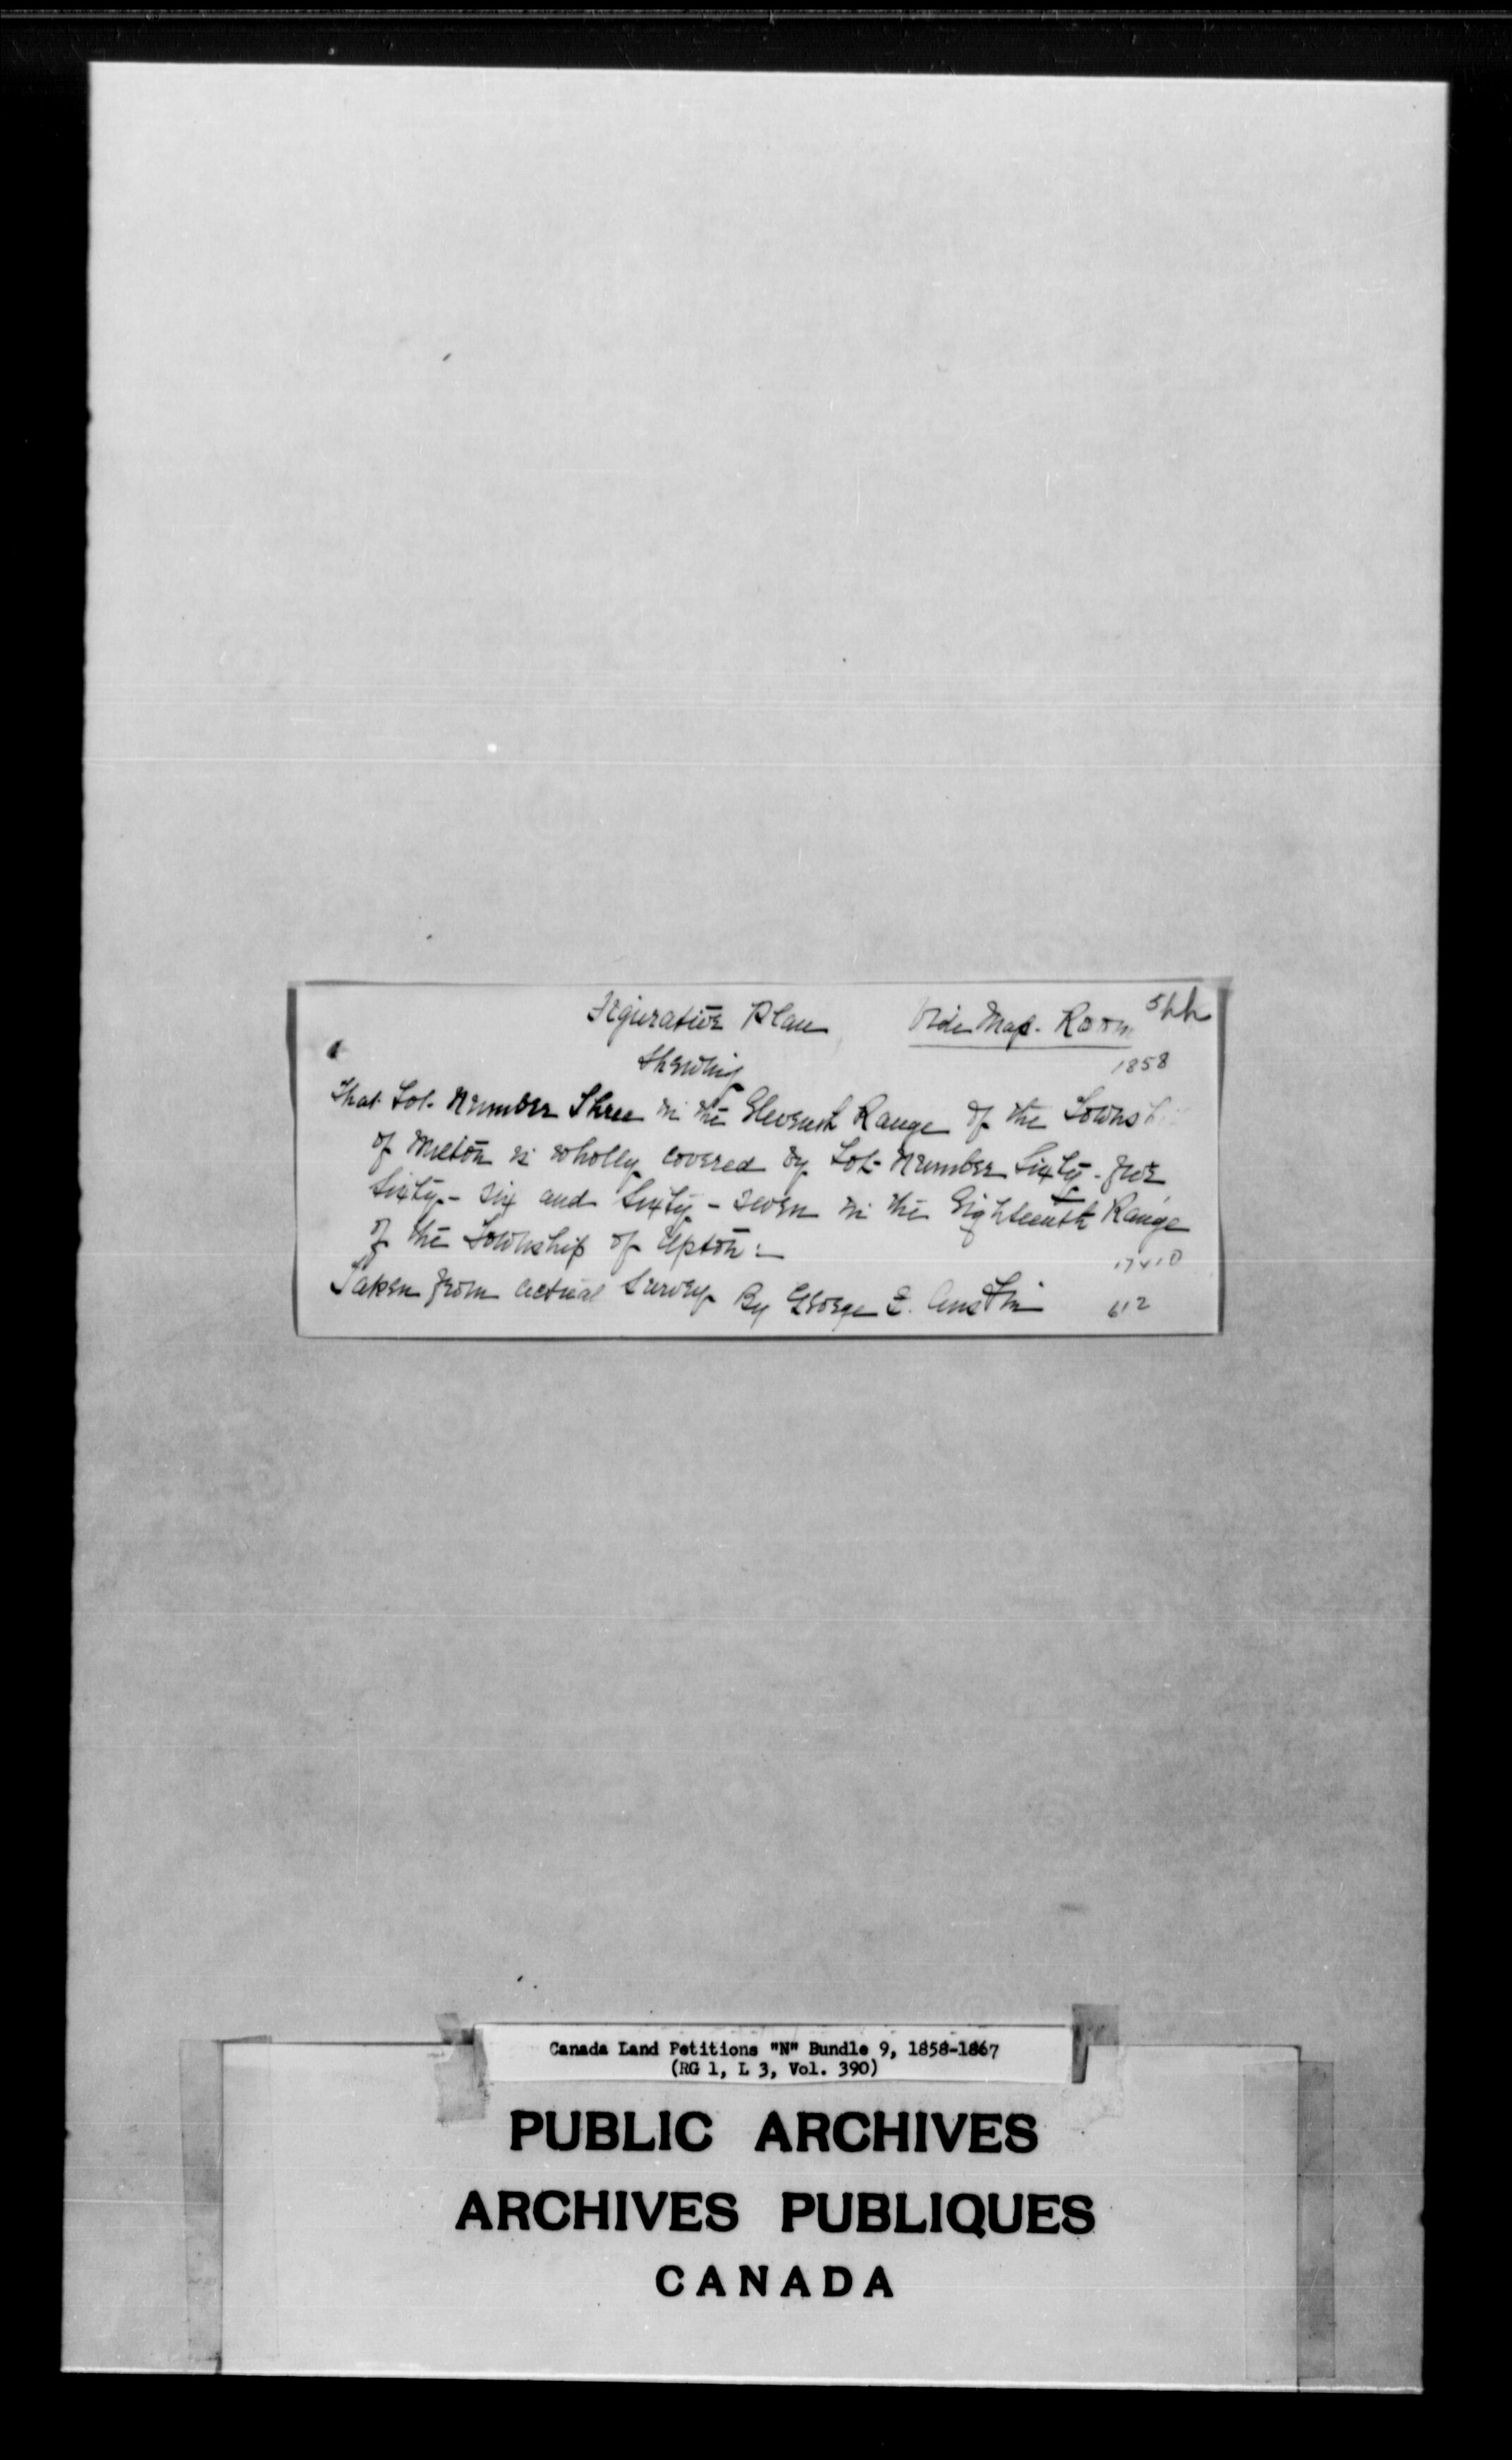 Figurative Plan Vide Map. Room
Shewing 1858
That Lot Number Three in the Eleventh Range of the Towns
of Milton is wholly covered by Lot Number Sixty-five
Sixty-six and Sixty-seven in the Eighteenth Range
of the Township of Upton:
Taken from actual Survey By George F. Austin 612
Canada Land Petitions "N" Bundle 9, 1858-1867
(RG 1, L 3, Vol. 390)
PUBLIC ARCHIVES
ARCHIVES PUBLIQUES
CANADA